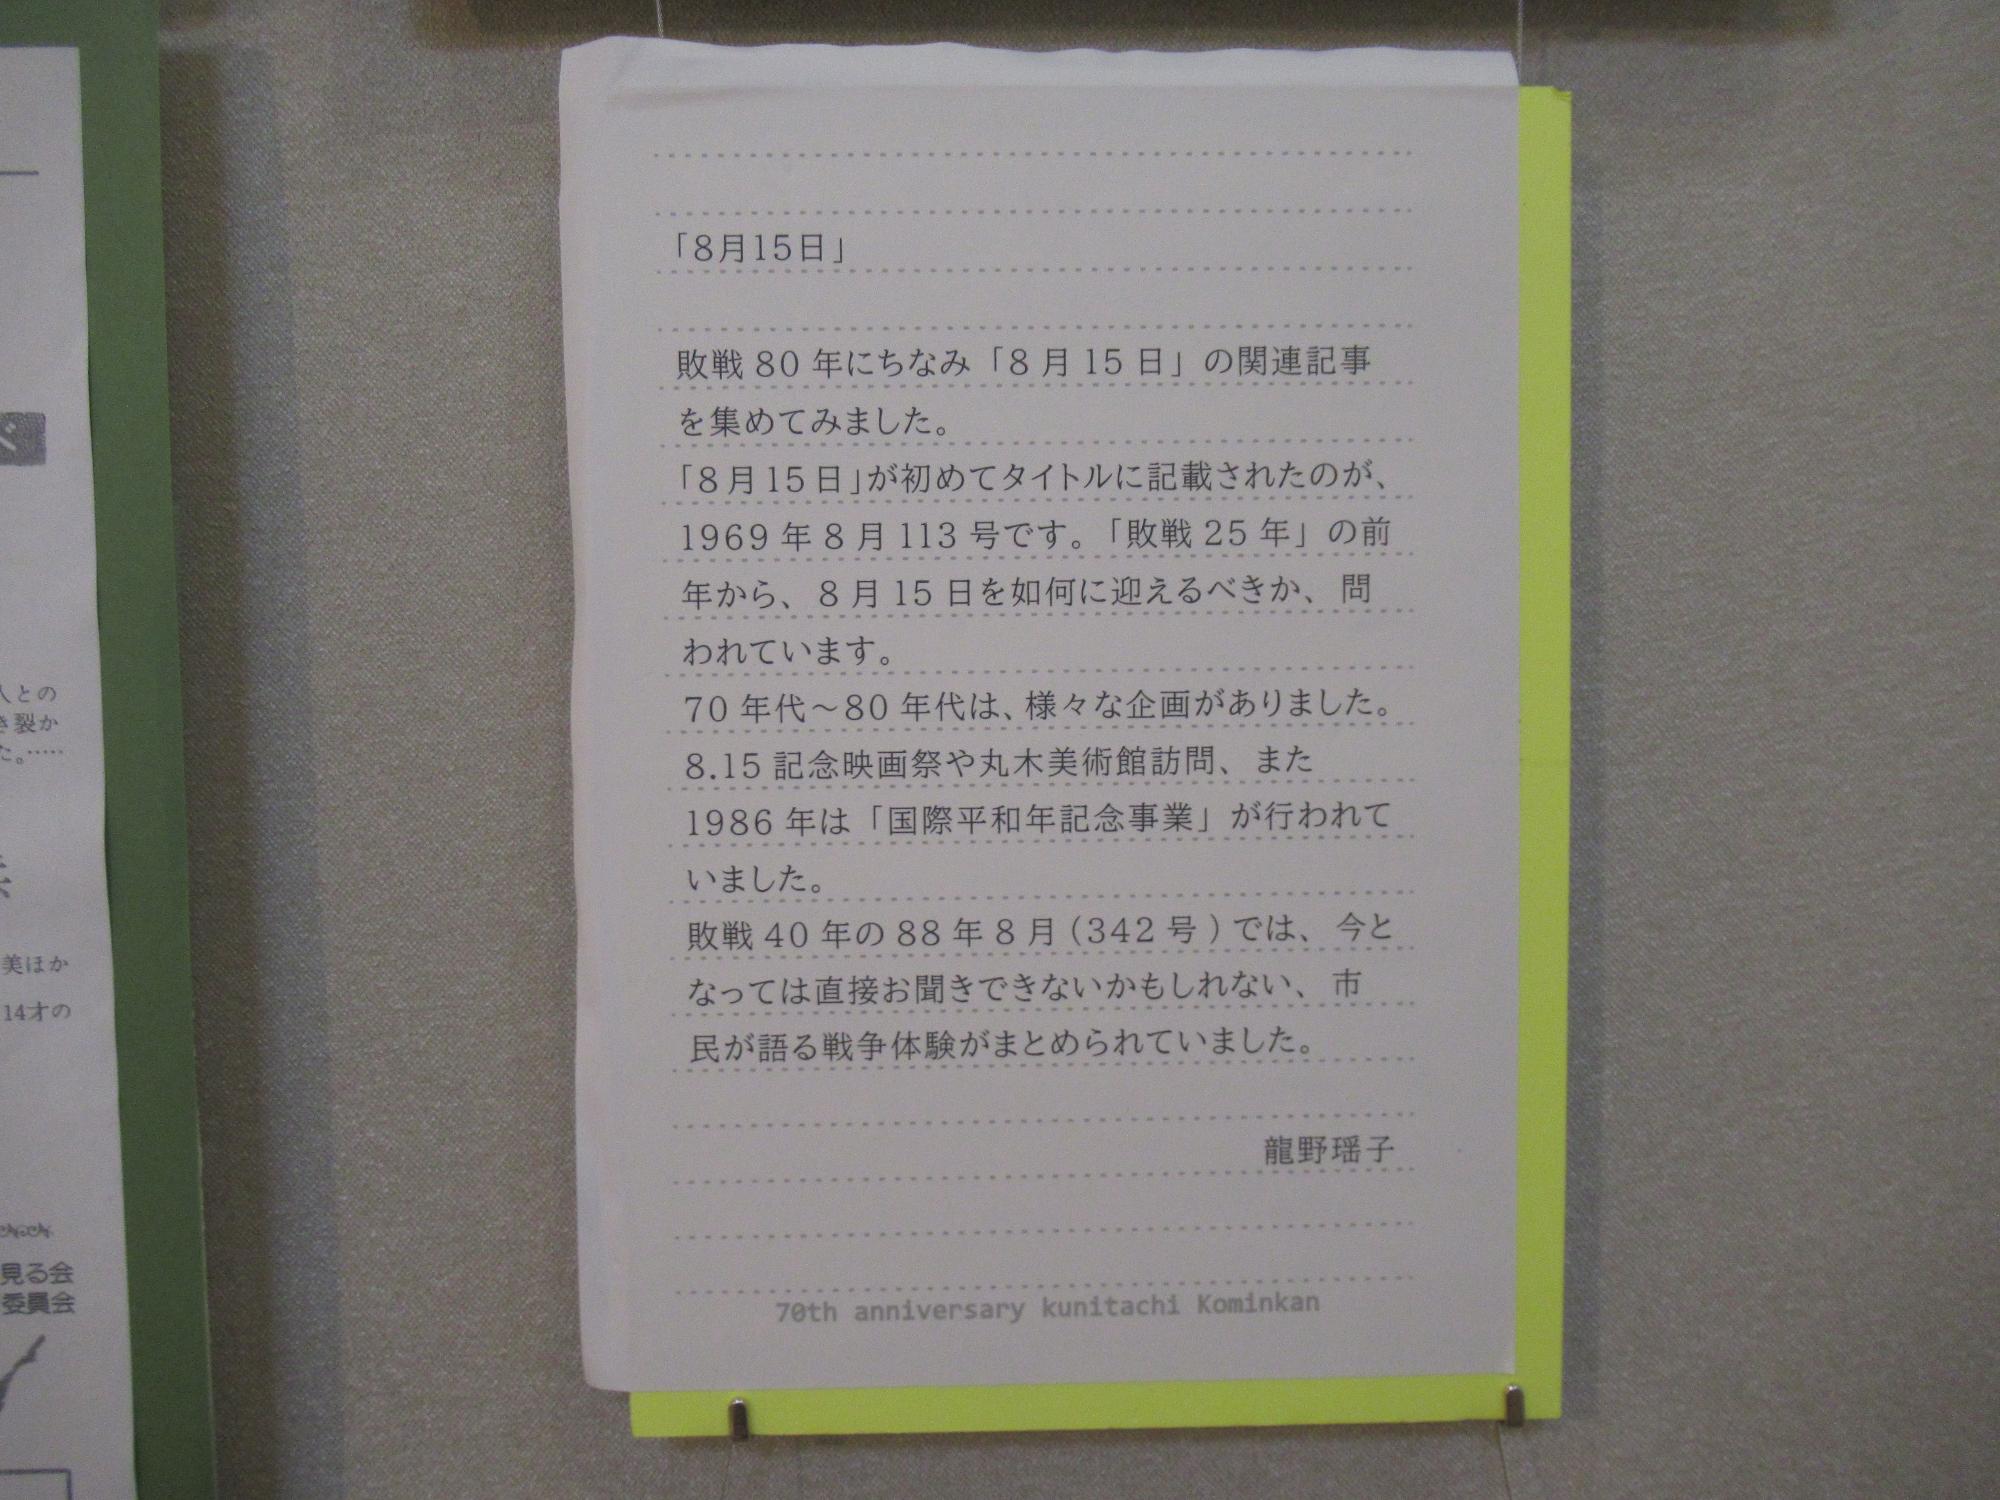 「8月15日」
敗戦 80 年にちなみ「8 月 15 日」の関連記事
を集めてみました。
「8月15日」が初めてタイトルに記載されたのが、
1969 年 8 月 113 号です。「敗戦 25 年」の前
年から、8 月 15 日を如何に迎えるべきか、問
われています。
70 年代～80 年代は、様々な企画がありました。
8.15 記念映画祭や丸木美術館訪問、また
1986 年は「国際平和年記念事業」が行われて
いました。
敗戦 40 年の 88 年 8 月（342 号）では、今と
なっては直接お聞きできないかもしれない、市
民が語る戦争体験がまとめられていました。
龍野瑶子
70th anniversary kunitachi Kominkan
人との
き裂か
た。……
美ほか
14才の
見る会
委員会